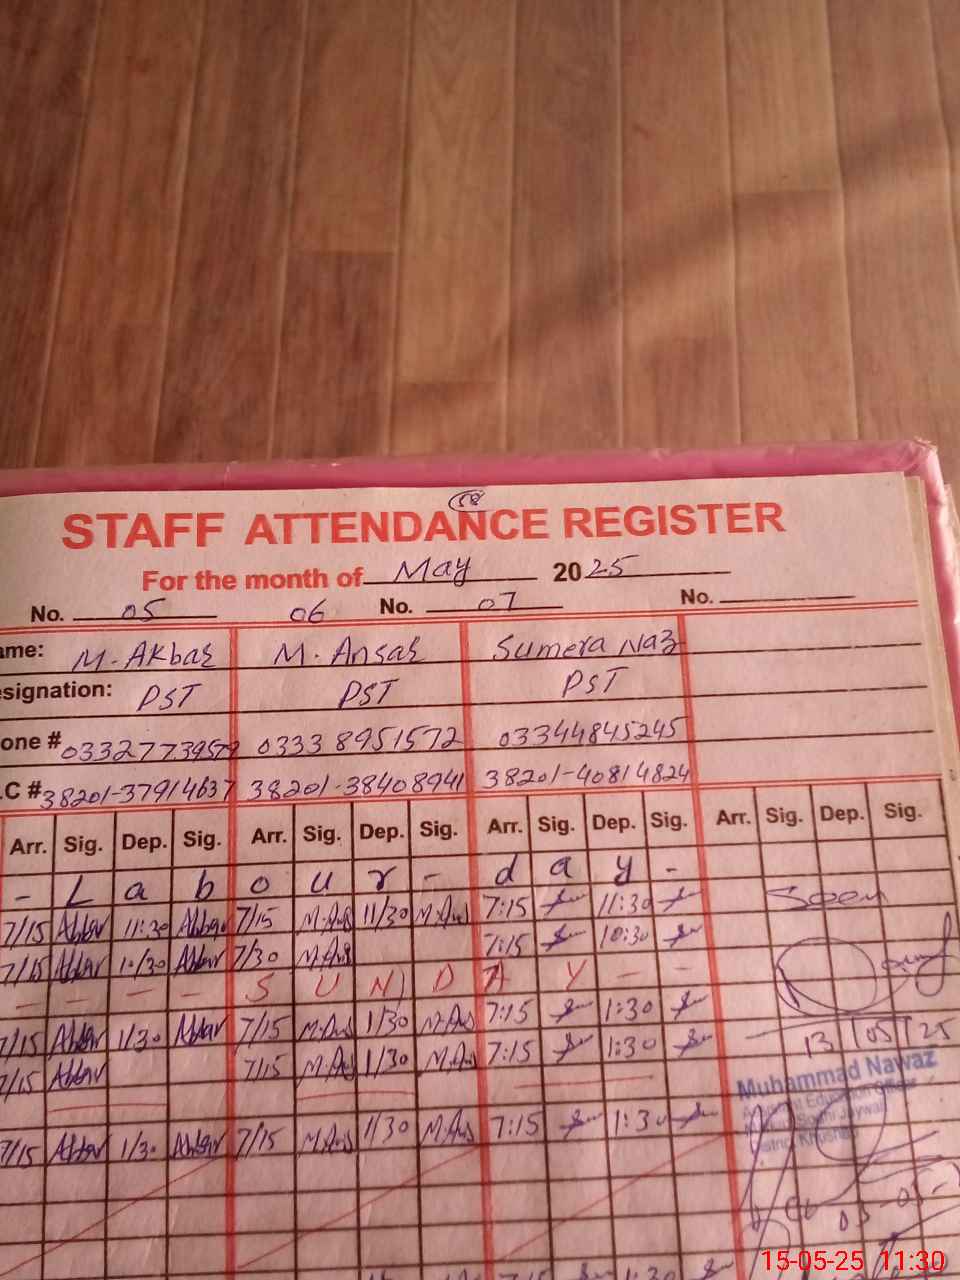 58
STAFF ATTENDANCE REGISTER
For the month of May 2025
No. 05 06 No. 07 No.
ame: M. Akbar M. Ansar Sumera Naz
esignation: PST PST PST
one # 03327739579 0333 8951572 03344845245
.C # 38201-37914637 38201-38408941 38201-40814824
Arr. Sig. Dep. Sig. Arr. Sig. Dep. Sig. Arr. Sig. Dep. Sig. Arr. Sig. Dep. Sig.
- L a b o u r - d a y -
7/15 Akbar 11:30 Akbar 7/15 M.Ans 11/30 M.Ans 7:15 11:30 Seen
7/15 Akbar 10/30 Akbar 7/30 M.Ans 7:15 10:30
- - - - S U N D A Y - -
7/15 Akbar 1/30 Akbar 7/15 M.Ans 1/30 M.Ans 7:15 1:30
7/15 Akbar 7/15 M.Ans 1/30 M.Ans 7:15 1:30 13 05 25
Muhammad Nawaz
7/15 Akbar 1/30 Akbar 7/15 M.Ans 1/30 M.Ans 7:15 1:30
District Khushab
7:15 1:30
15-05-25 11:30